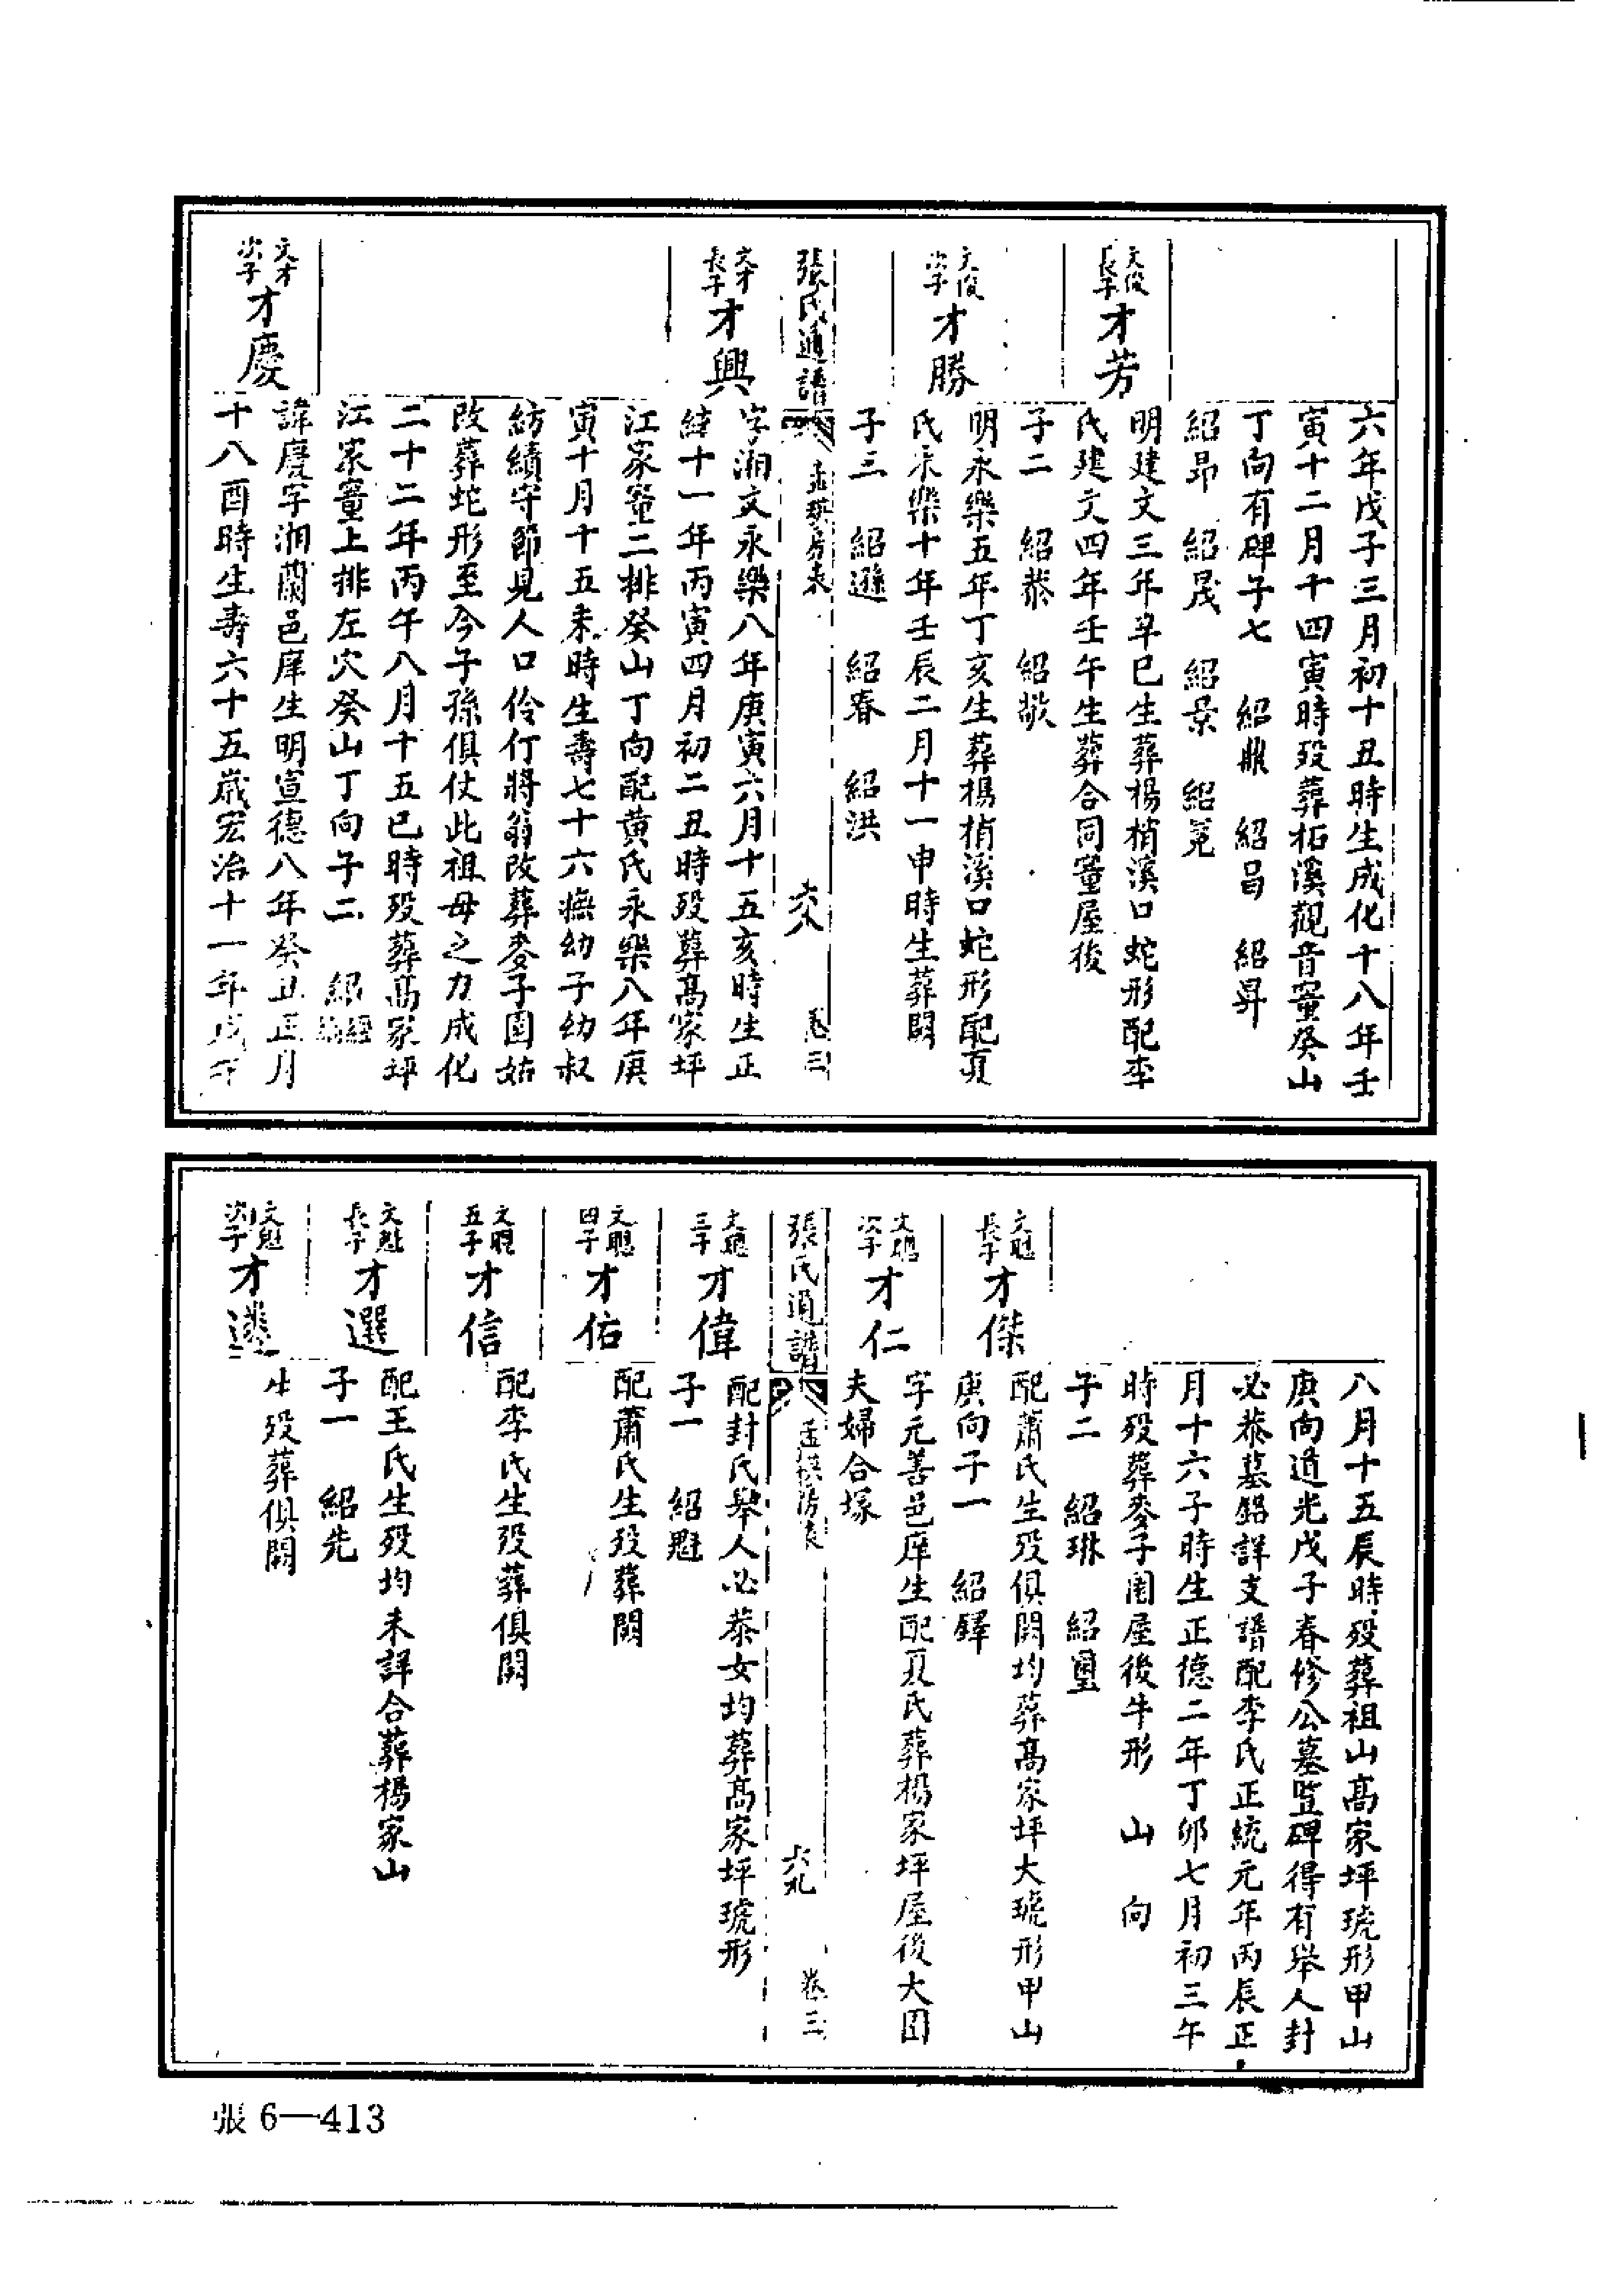 六年戊子三月初十丑時生成化十八年壬
寅十二月十四寅時歿葬柘溪觀音壋癸山
丁向有碑子七 紹鼎 紹昌 紹昇
紹昴 紹晟 紹景 紹冕
文俊長子 才芳
明建文三年辛巳生葬楊梢溪口蛇形配李
氏建文四年壬午生葬合同壋屋後
子二 紹恭 紹敬
文俊次子 才勝
明永樂五年丁亥生葬楊梢溪口蛇形配夏
氏永樂十年壬辰二月十一申時生葬闕
子三 紹遜 紹春 紹洪
張氏通譜 孟琪房表 六八 卷三
文才長子 才興
字湘文永樂八年庚寅六月十五亥時生正
統十一年丙寅四月初二丑時歿葬高家坪
江家壋二排癸山丁向配黄氏永樂八年庚
寅十月十五未時生壽七十六撫幼子幼叔
紡績守節見人口伶仃將翁改葬麥子園姑
改葬蛇形至今子孫俱仗此祖母之力成化
二十二年丙午八月十五巳時歿葬高家坪
江家壋上排左穴癸山丁向子二 紹經 紹
文才次子 才慶
諱慶字湘蘭邑庠生明宣德八年癸丑正月
十八酉時生壽六十五歲宏治十一年戊午
八月十五辰時歿葬祖山高家坪琥形甲山
庚向道光戊子春修公墓竪碑得有舉人封
必恭墓銘詳支譜配李氏正統元年丙辰正
月十六子時生正德二年丁卯七月初三午
時歿葬麥子園屋後牛形 山 向
子二 紹琳 紹璽
文聰長子 才傑
配蕭氏生歿俱闕均葬高家坪大琥形甲山
庚向子一 紹鐸
文聰次子 才仁
字元善邑庠生配夏氏葬楊家坪屋後大園
夫婦合塚
張氏通譜 孟琪房表 六九 卷三
文聰三子 才偉
配封氏舉人必恭女均葬高家坪琥形
子一 紹魁
文聰四子 才佑
配蕭氏生歿葬闕
文聰五子 才信
配李氏生歿葬俱闕
文魁長子 才選
配王氏生歿均未詳合葬楊家山
子一 紹先
文魁次子 才遴
生歿葬俱闕
張6—413